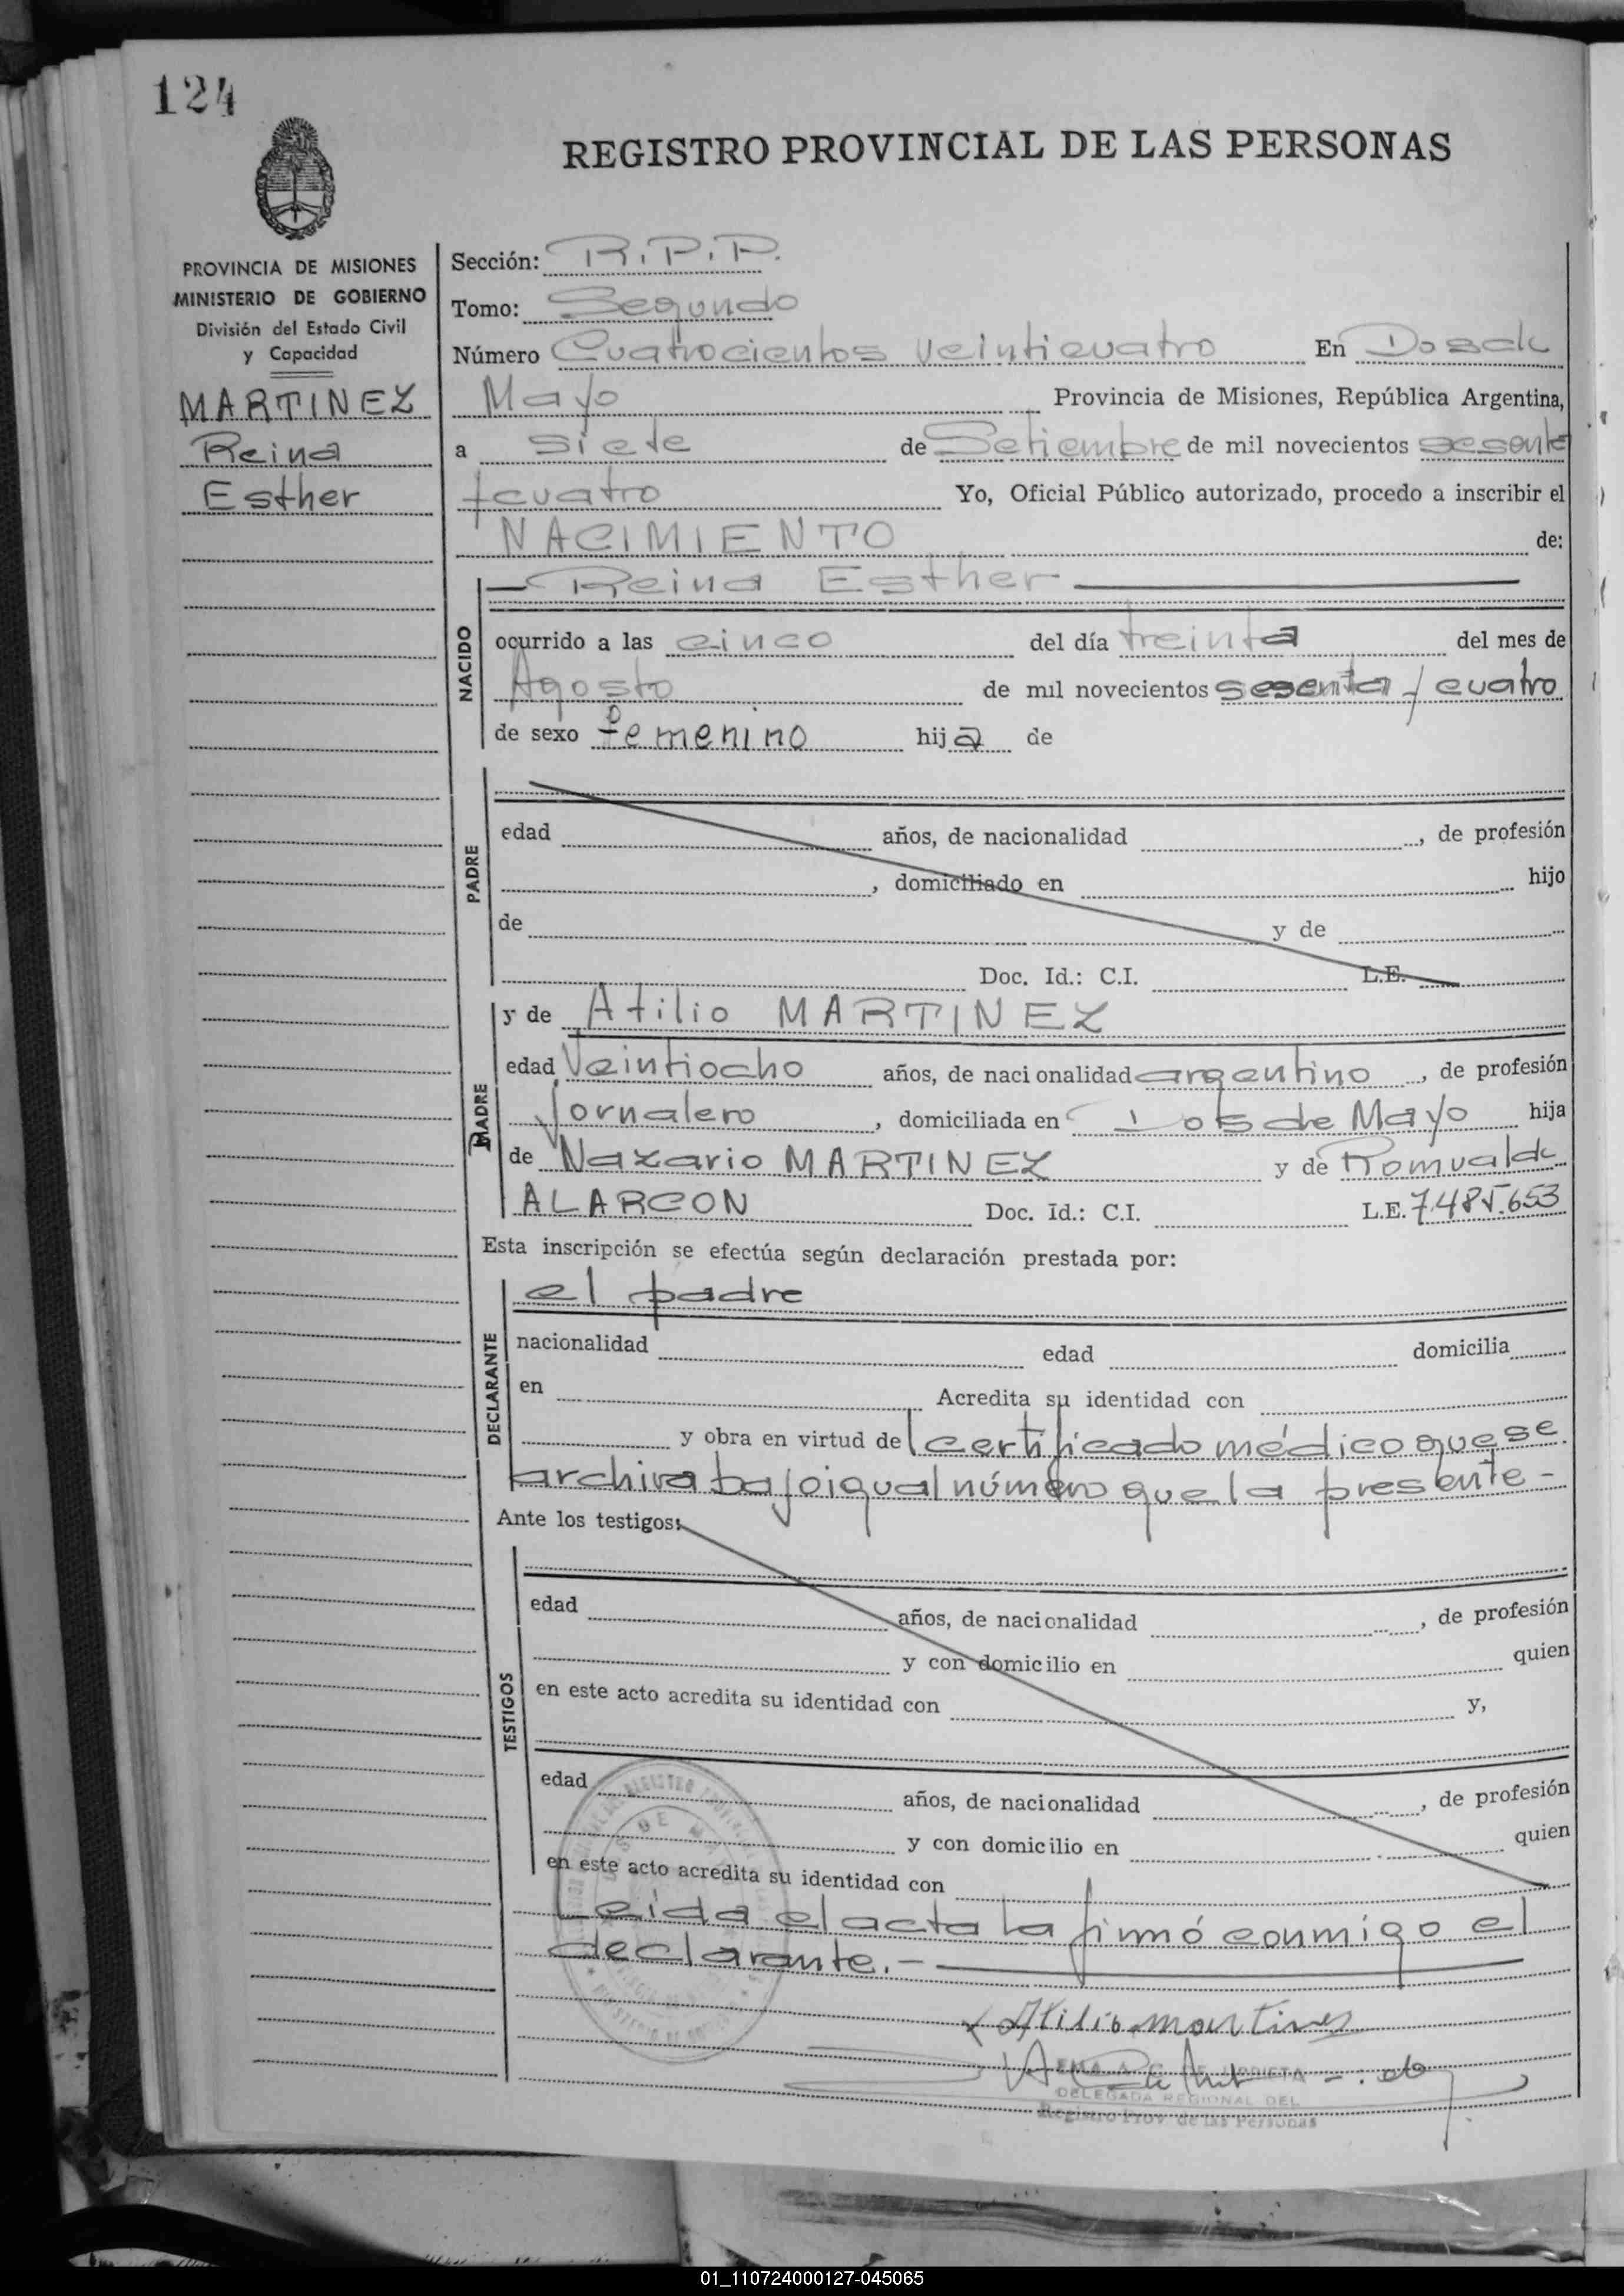 124
REGISTRO PROVINCIAL DE LAS PERSONAS
PROVINCIA DE MISIONES
MINISTERIO DE GOBIERNO
División del Estado Civil
y Capacidad
MARTINEZ
Reina
Esther
Sección: R.P.P.
Tomo: Segundo
Número Cuatrocientos veinticuatro En Dos de
Mayo Provincia de Misiones, República Argentina,
a siete de Setiembre de mil novecientos sesenta
y cuatro Yo, Oficial Público autorizado, procedo a inscribir el
NACIMIENTO de:
NACIDO
Reina Esther
ocurrido a las cinco del día treinta del mes de
Agosto de mil novecientos sesenta y cuatro
de sexo femenino hija de
PADRE
edad años, de nacionalidad , de profesión
, domiciliado en hijo
de y de
Doc. Id.: C.I. L.E.
y de Atilio MARTINEZ
edad Veintiocho años, de nacionalidad argentino , de profesión
Jornalero , domiciliada en Dos de Mayo hija
de Nazario MARTINEZ y de Romualda
ALARCON Doc. Id.: C.I. L.E. 7.485.653
Esta inscripción se efectúa según declaración prestada por:
DECLARANTE
el padre
nacionalidad edad domicilia
en Acredita su identidad con
y obra en virtud de certificado médico que se
archiva bajo igual número que la presente-
Ante los testigos:
TESTIGOS
edad años, de nacionalidad , de profesión
y con domicilio en quien
en este acto acredita su identidad con y,
edad años, de nacionalidad , de profesión
y con domicilio en quien
en este acto acredita su identidad con
Leida el acta la firmó conmigo el
declarante.-
x Atilio martines
DELEGADA REGIONAL DEL
Registro Prov. de las Personas
01_110724000127-045065